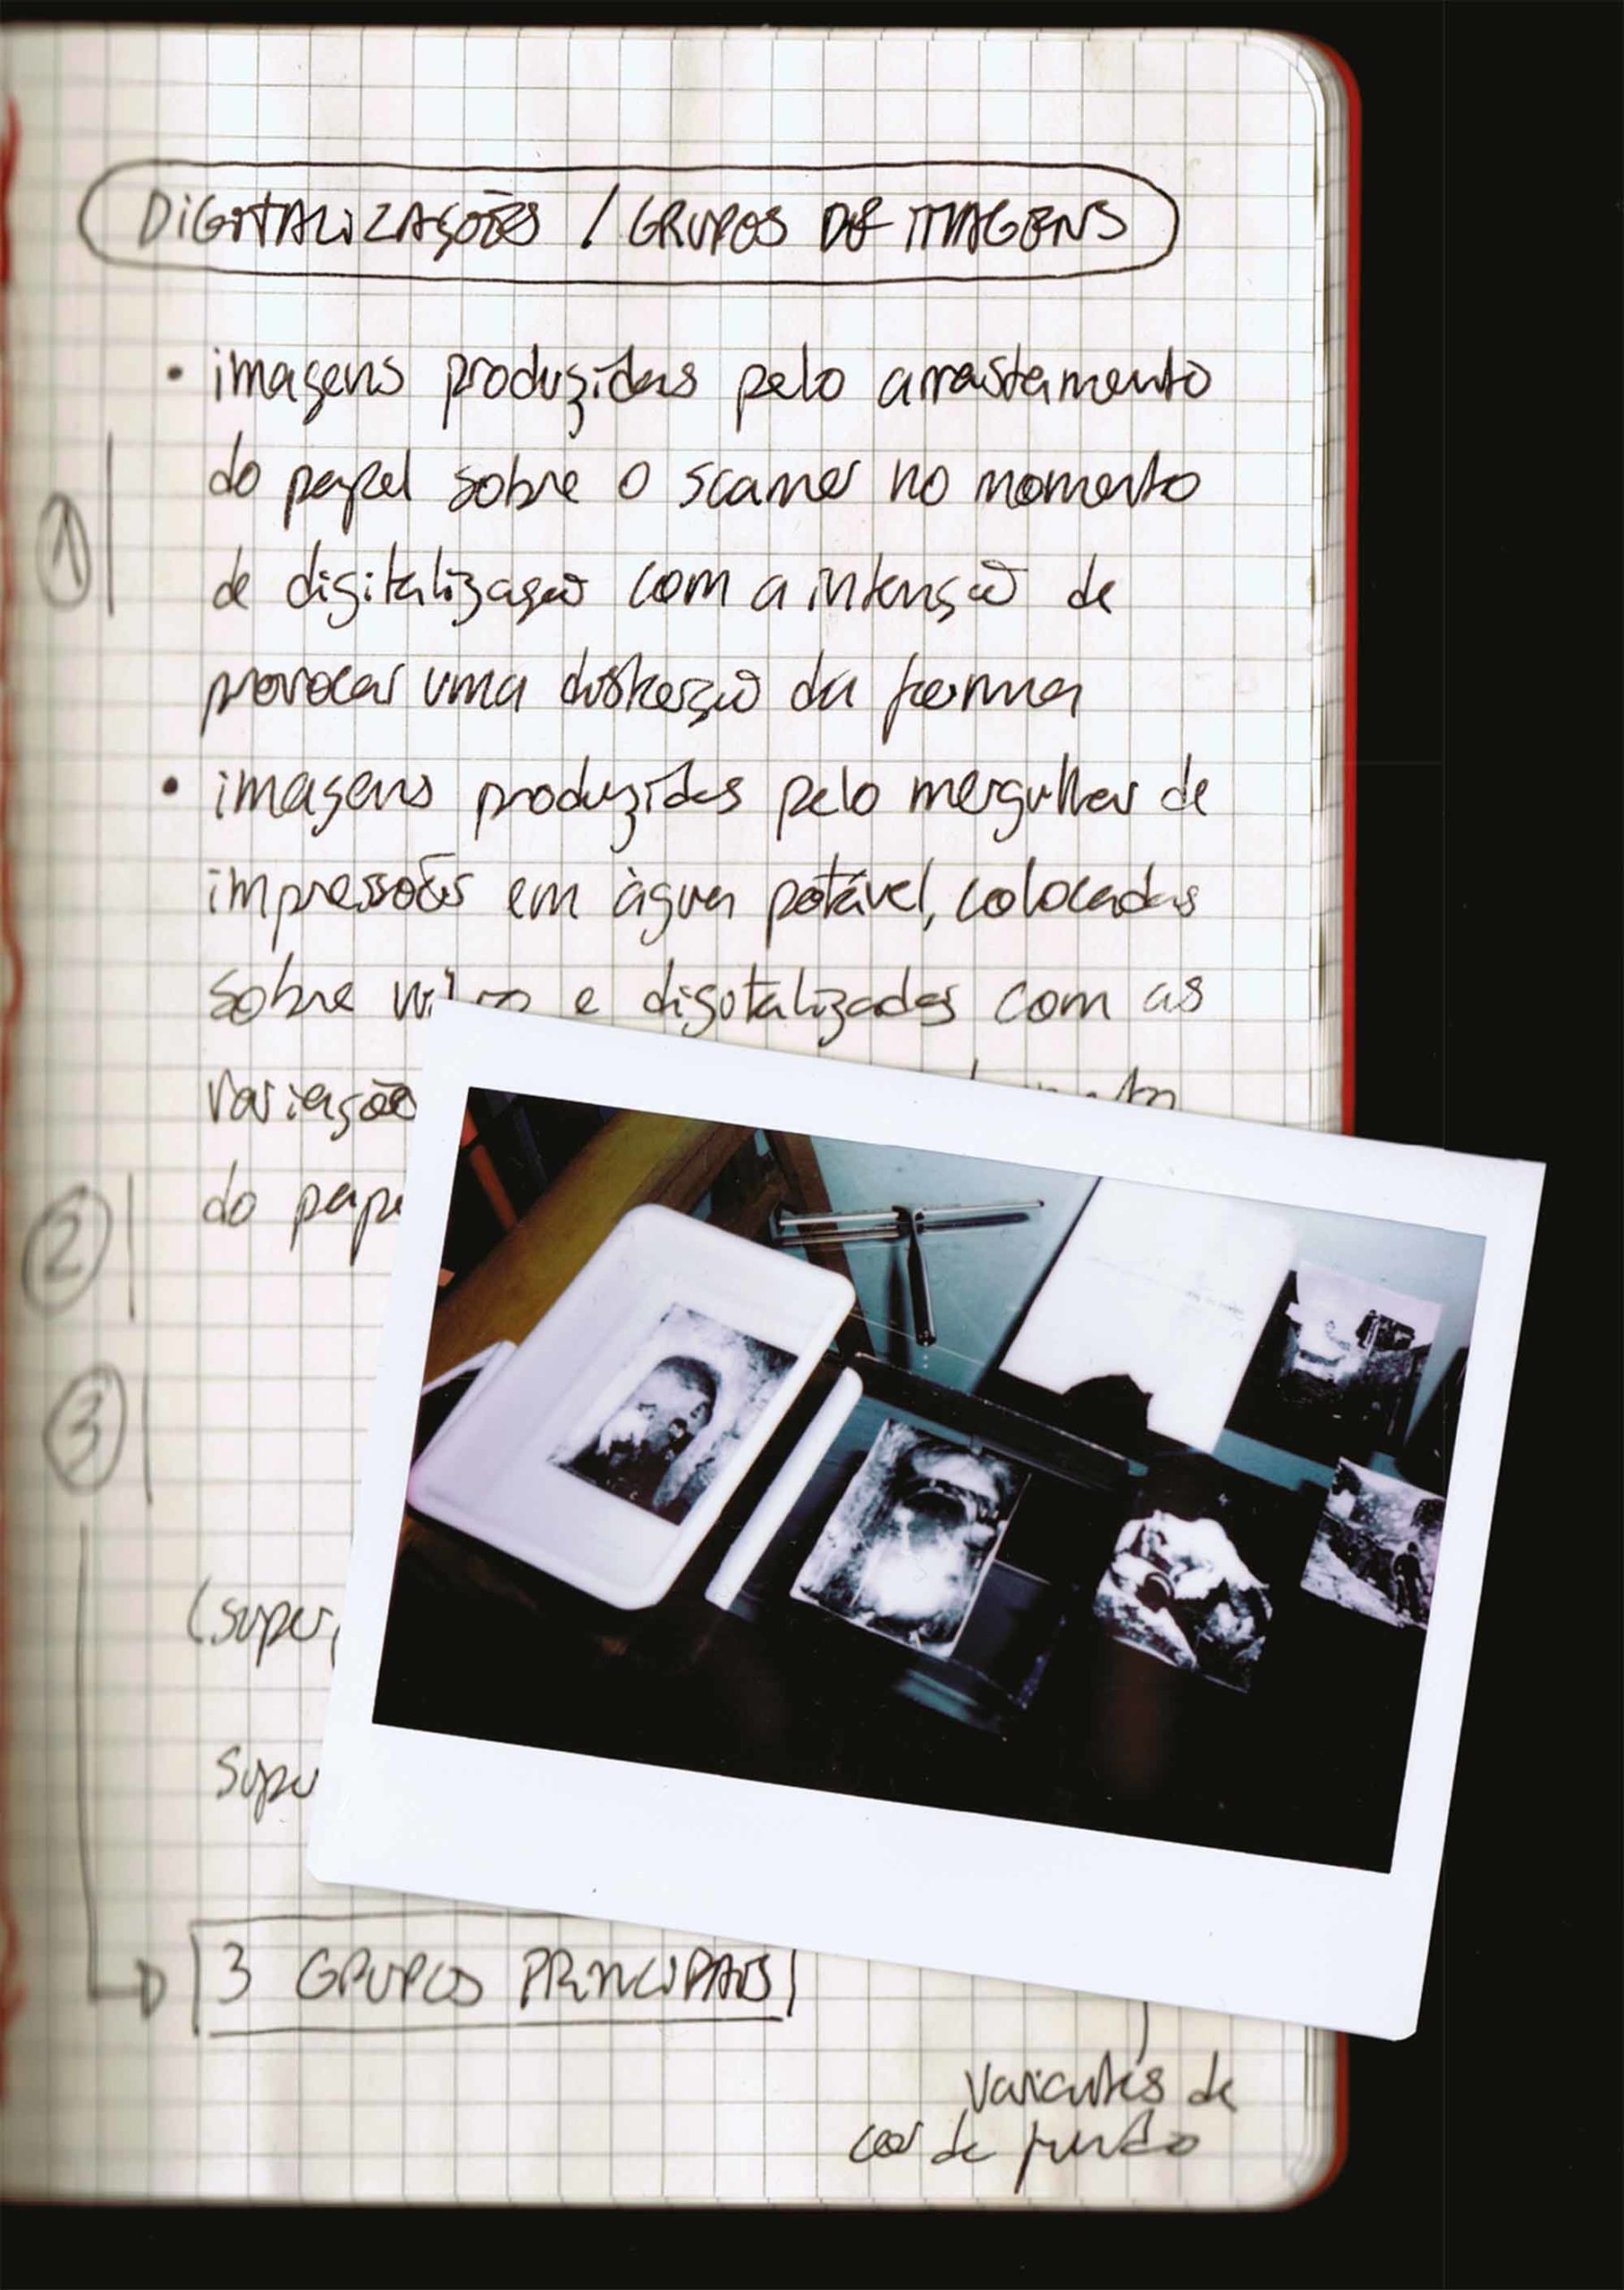 DIGITALIZAÇÕES / GRUPOS DE IMAGENS
• imagens produzidas pelo arrastamento
do papel sobre o scaner no momento
① de digitalização com a intenção de
provocar uma distorção da forma
• imagens produzidas pelo mergulhar de
impressões em àgua potável, colocadas
sobre e digitalizadas com as
variações
② do pape
③
(super
Supe
3 GRUPOS PRINCIPAIS
variantes de
cor de fundo